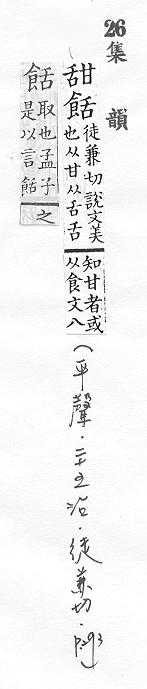 26集韻
甜䬯徒兼切說文美也从甘从舌舌知甘者或从食文八
䬯取也孟子是以言䬯之
(平聲.二十五沾.徒兼切.P.293)